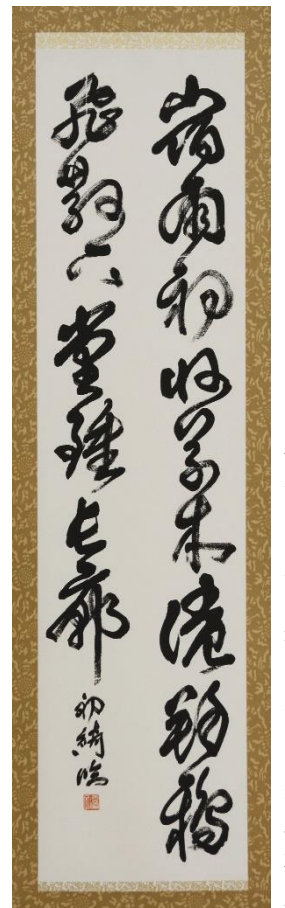 宿雨初收草木濃群鴉
飛散下堂鐘長廊
初綺臨